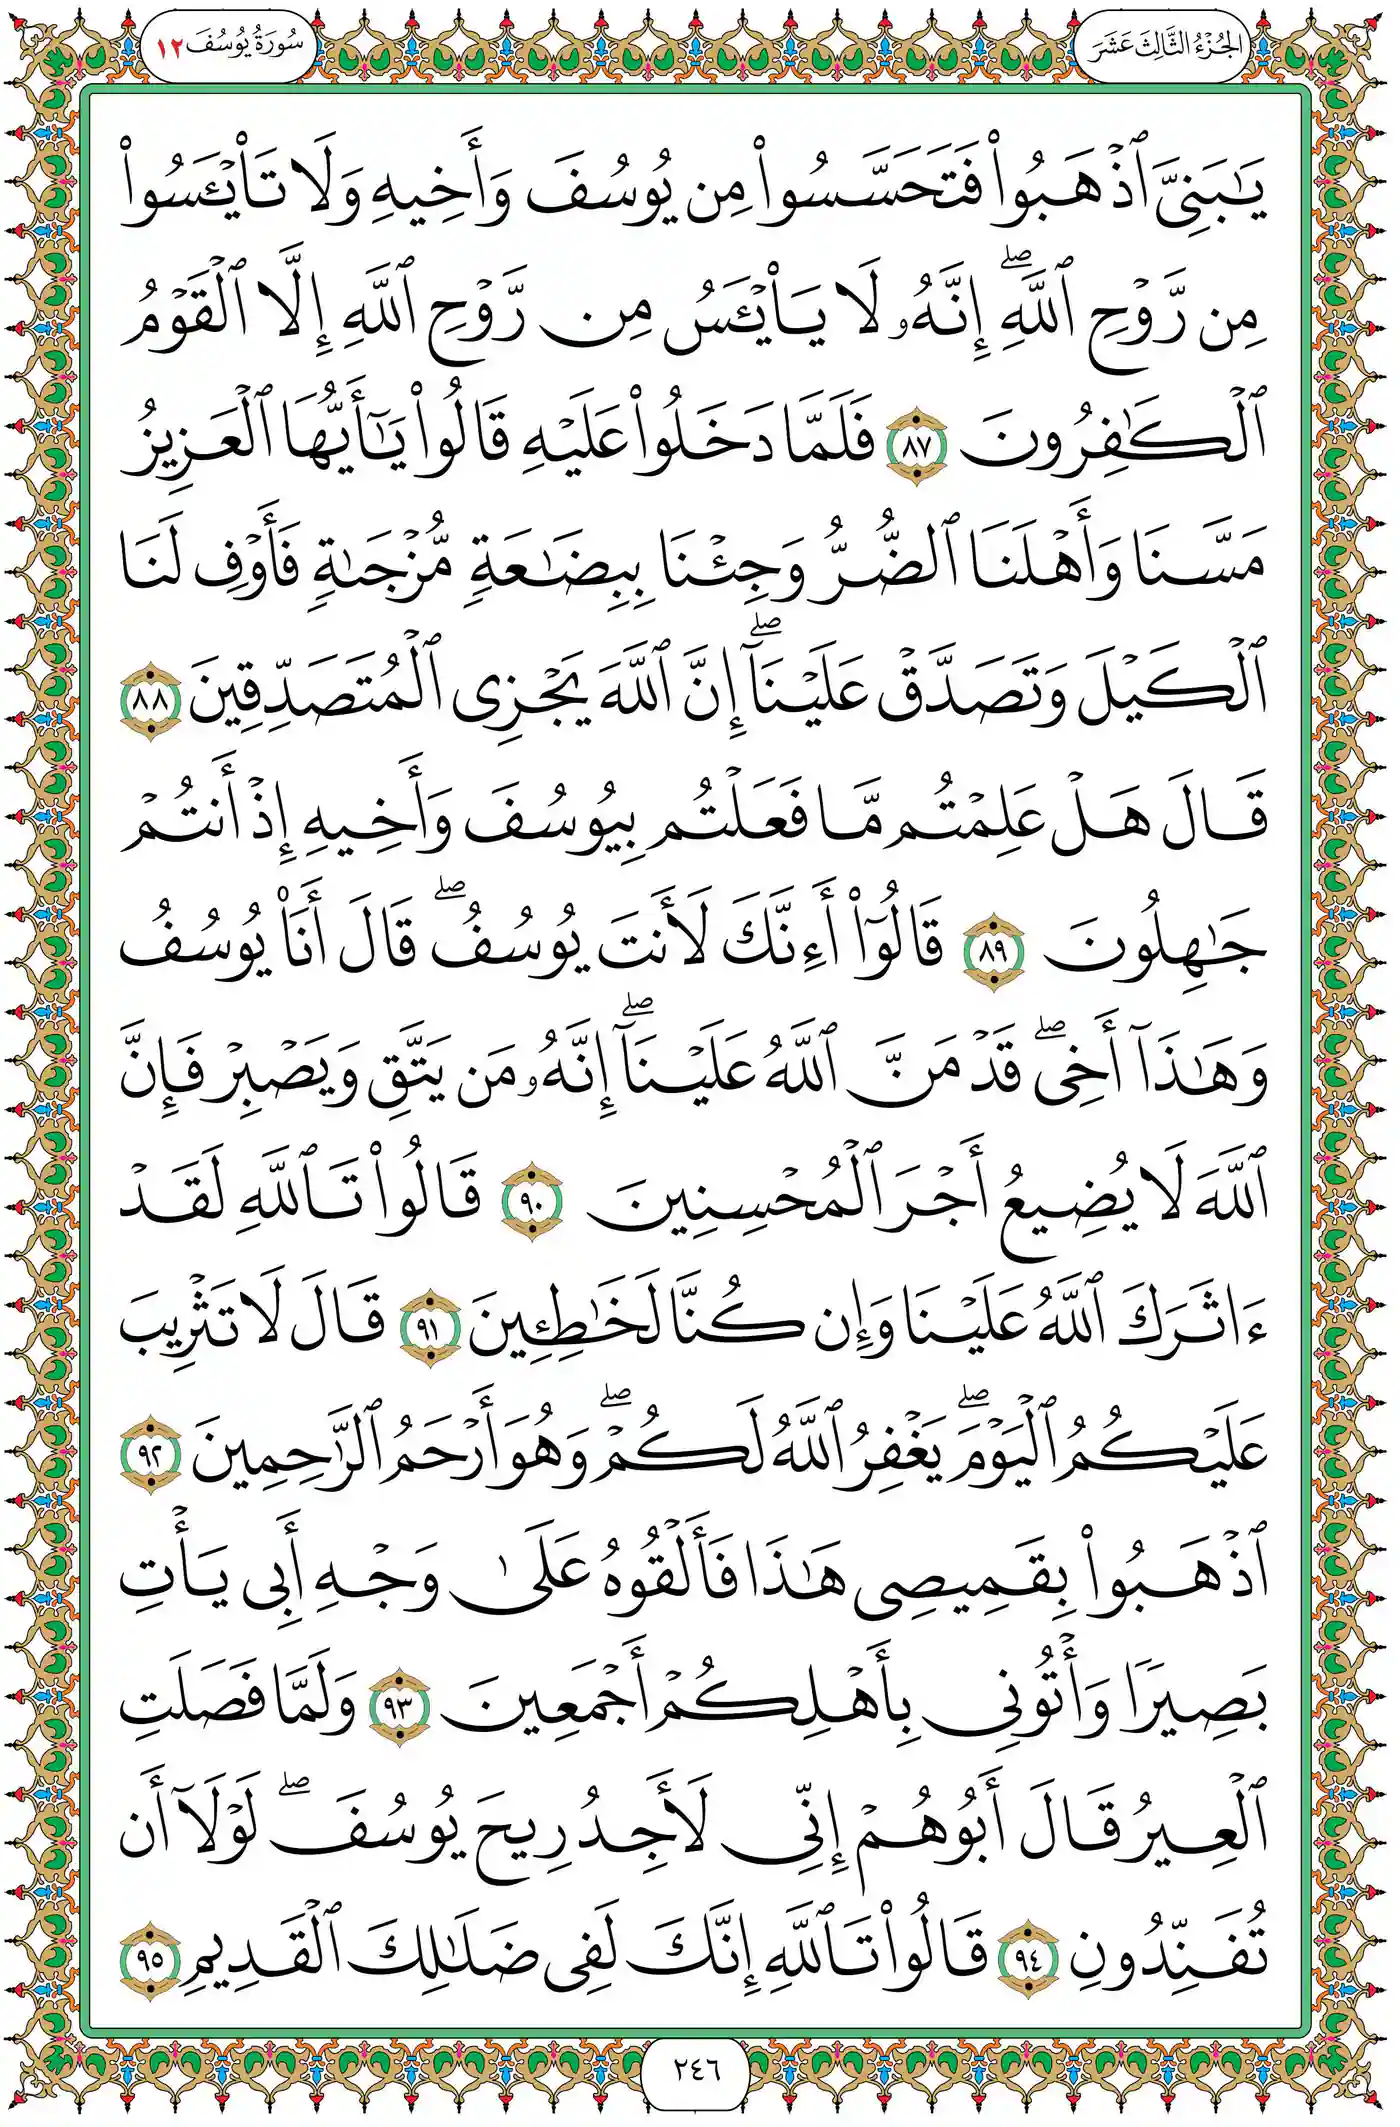 الجُزْءُ الثَّالِثَ عَشَرَ
سُورَةُ يُوسُفَ ١٢
يَٰبَنِىَّ ٱذْهَبُوا۟ فَتَحَسَّسُوا۟ مِن يُوسُفَ وَأَخِيهِ وَلَا تَا۟يْـَٔسُوا۟
مِن رَّوْحِ ٱللَّهِ ۖ إِنَّهُۥ لَا يَا۟يْـَٔسُ مِن رَّوْحِ ٱللَّهِ إِلَّا ٱلْقَوْمُ
ٱلْكَٰفِرُونَ ٨٧ فَلَمَّا دَخَلُوا۟ عَلَيْهِ قَالُوا۟ يَٰٓأَيُّهَا ٱلْعَزِيزُ
مَسَّنَا وَأَهْلَنَا ٱلضُّرُّ وَجِئْنَا بِبِضَٰعَةٍ مُّزْجَىٰةٍ فَأَوْفِ لَنَا
ٱلْكَيْلَ وَتَصَدَّقْ عَلَيْنَآ ۖ إِنَّ ٱللَّهَ يَجْزِى ٱلْمُتَصَدِّقِينَ ٨٨
قَالَ هَلْ عَلِمْتُم مَّا فَعَلْتُم بِيُوسُفَ وَأَخِيهِ إِذْ أَنتُمْ
جَٰهِلُونَ ٨٩ قَالُوٓا۟ أَءِنَّكَ لَأَنتَ يُوسُفُ ۖ قَالَ أَنَا۠ يُوسُفُ
وَهَٰذَآ أَخِى ۖ قَدْ مَنَّ ٱللَّهُ عَلَيْنَآ ۖ إِنَّهُۥ مَن يَتَّقِ وَيَصْبِرْ فَإِنَّ
ٱللَّهَ لَا يُضِيعُ أَجْرَ ٱلْمُحْسِنِينَ ٩٠ قَالُوا۟ تَٱللَّهِ لَقَدْ
ءَاثَرَكَ ٱللَّهُ عَلَيْنَا وَإِن كُنَّا لَخَٰطِـِٔينَ ٩١ قَالَ لَا تَثْرِيبَ
عَلَيْكُمُ ٱلْيَوْمَ ۖ يَغْفِرُ ٱللَّهُ لَكُمْ ۖ وَهُوَ أَرْحَمُ ٱلرَّٰحِمِينَ ٩٢
ٱذْهَبُوا۟ بِقَمِيصِى هَٰذَا فَأَلْقُوهُ عَلَىٰ وَجْهِ أَبِى يَأْتِ
بَصِيرًا وَأْتُونِى بِأَهْلِكُمْ أَجْمَعِينَ ٩٣ وَلَمَّا فَصَلَتِ
ٱلْعِيرُ قَالَ أَبُوهُمْ إِنِّى لَأَجِدُ رِيحَ يُوسُفَ ۖ لَوْلَآ أَن
تُفَنِّدُونِ ٩٤ قَالُوا۟ تَٱللَّهِ إِنَّكَ لَفِى ضَلَٰلِكَ ٱلْقَدِيمِ ٩٥
٢٤٦